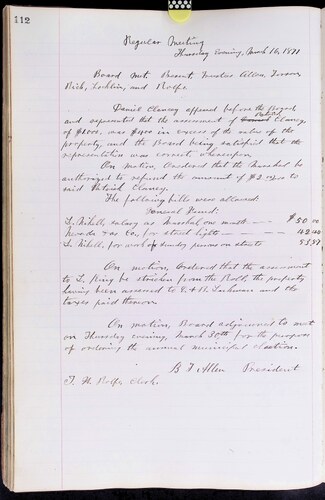 112
Regular Meeting
Thursday Evening, March 16, 1871
Board met. Present Messrs Allen,
Rich, and Rolfe.
Daniel Clancy appeared before the Board
and represented that the assessment of Patrick Clancy,
of $1000, was $400 in excess of the value of the
property, and the Board being satisfied that the
representation was correct, whereupon
On motion, Ordered that the Marshal be
authorized to refund the amount of to
said Patrick Clancy.
The following bills were allowed:
General Fund:
salary as Marshal one month $50.00
Gas Co. for street lights 42.00
for work of sundry persons on streets
On motion, Ordered that the assessment
to L. King be stricken from the Roll, the property
having been assessed to and the
taxes paid thereon.
On motion, Board adjourned to meet
on Thursday evening, March 30th for the purpose
of ordering the annual municipal election.
Allen President
T. H. Rolfe Clerk.